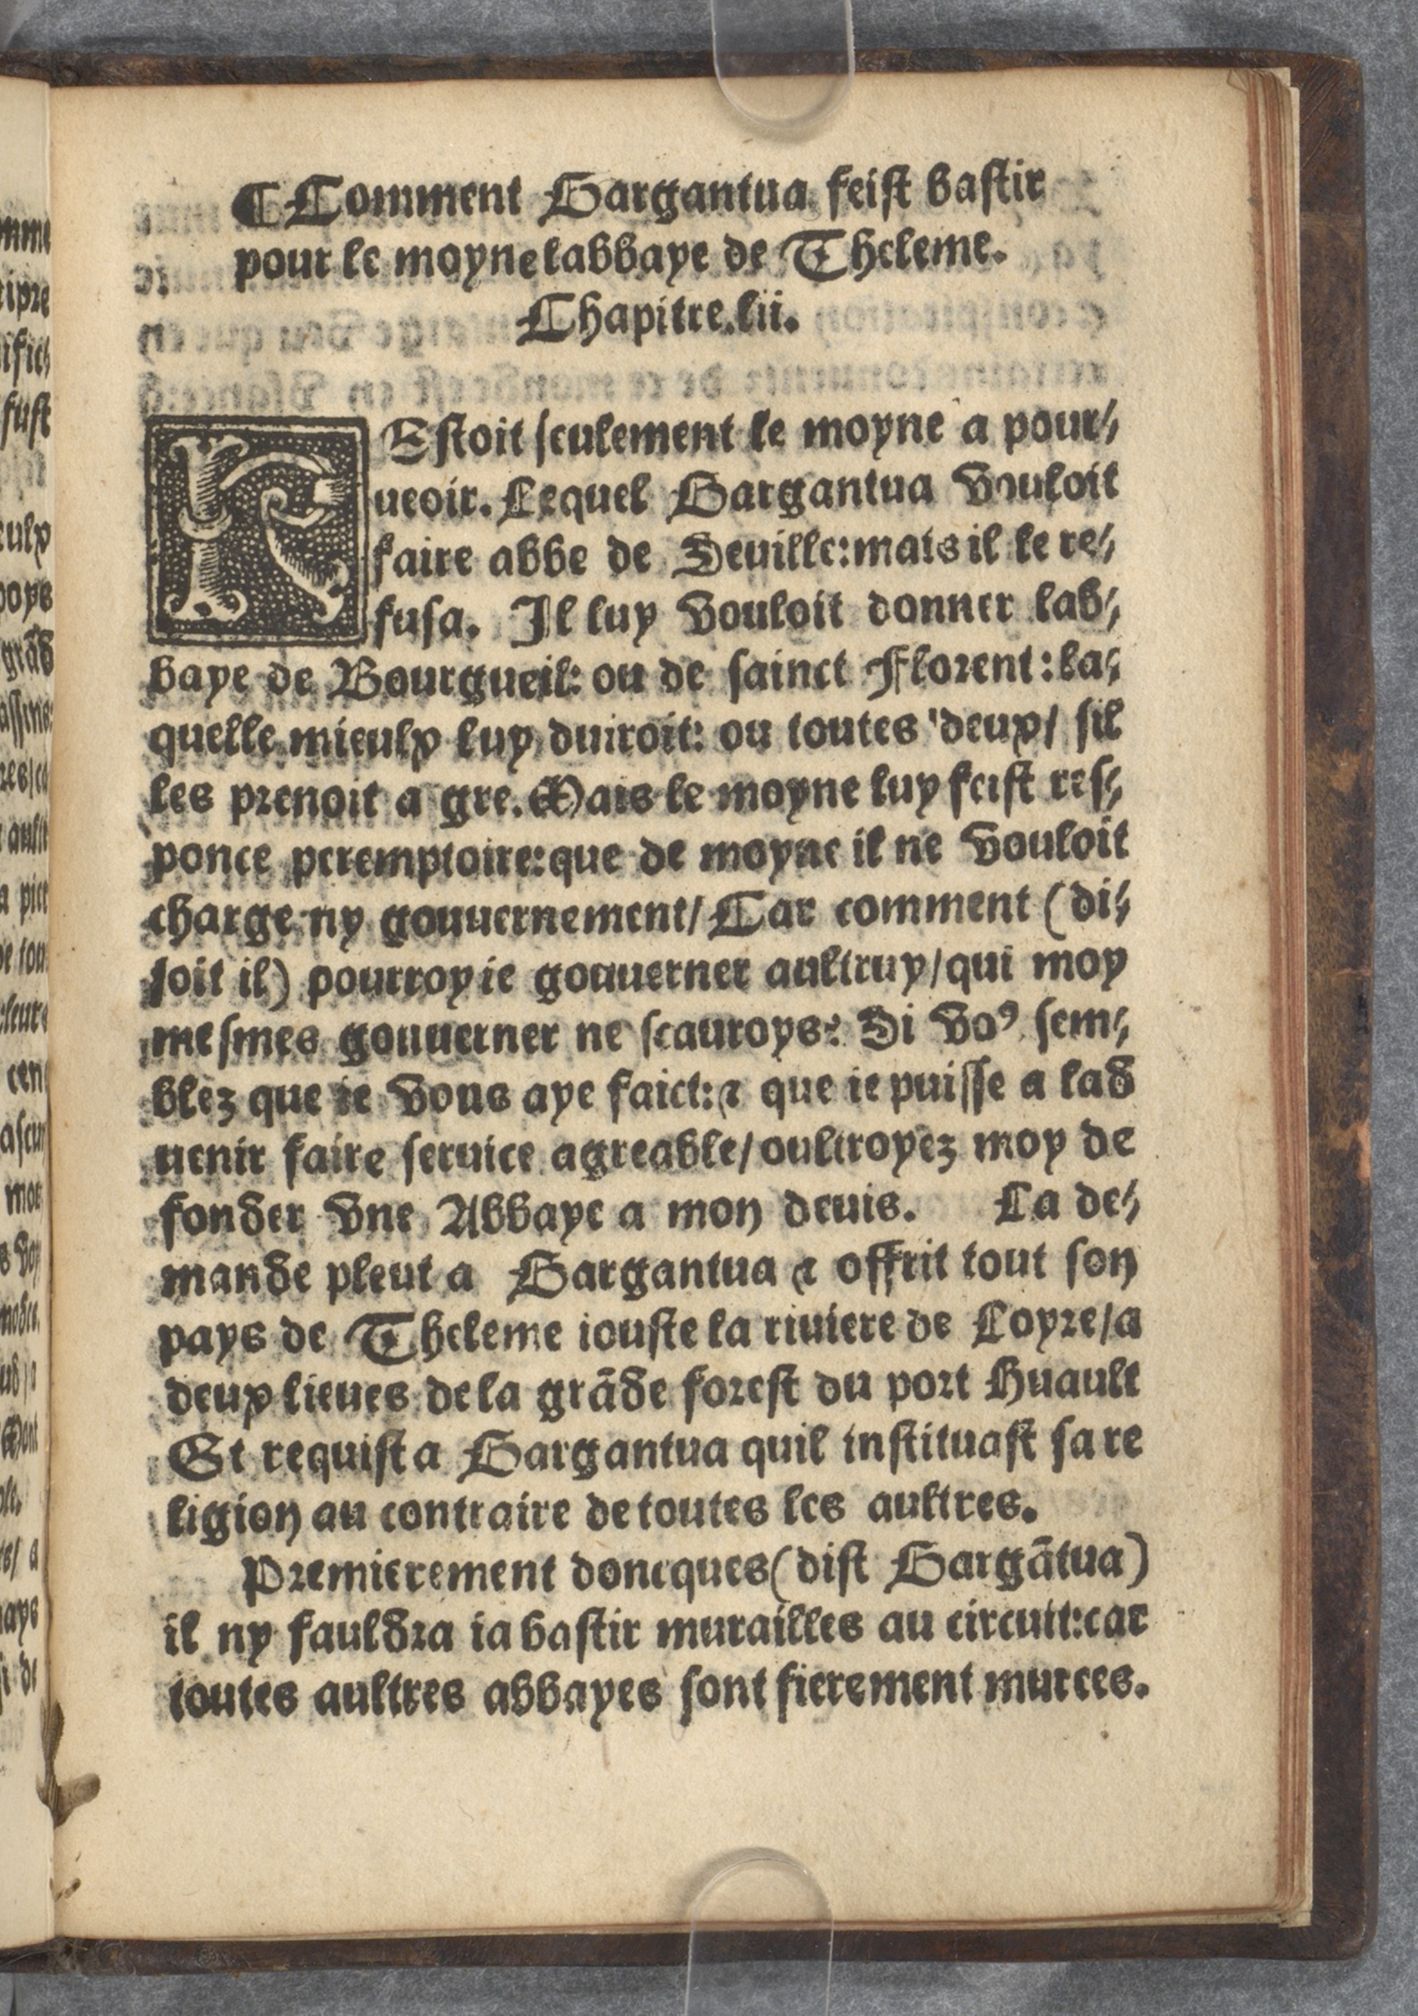 ¶ Comment Gargantua feist bastir
pour le moyne labbaye de Theleme.
Chapitre.lii.
REstoit seulement le moyne a pour/
ueoir. Lequel Gargantua vouloit
faire abbe de Seuille:mais il le re/
fusa. Il luy vouloit donner lab/
baye de Bourgueil: ou de sainct Florent:la/
quelle mieulx luy duiroit: ou toutes deux/ sil
les prenoit a gre. Mais le moyne luy feist res/
ponce peremptoire:que de moyne il ne vouloit
charge ny gouuernement/ Car comment (di/
soit il) pourroy ie gouuerner aultruy/qui moy
mesmes gouuerner ne scauroys? Si voꝰ sem/
blez que ie vous aye faict:⁊ que ie puisse a lad
uenir faire seruice agreable/oultroyez moy de
fonder vne Abbaye a mon deuis. La de/
mande pleut a Gargantua ⁊ offrit tout son
pays de Theleme iouste la riuiere de Loyre/a
deux lieues de la grãde forest du port Huault
Et requist a Gargantua quil instituast sa re
ligion au contraire de toutes les aultres.
Premierement doncques(dist Gargãtua)
il ny fauldra ia bastir murailles au circuit:car
toutes aultres abbayes sont fierement murees.
mme
fust
eulx
poys
grãd
cen
mon
aye